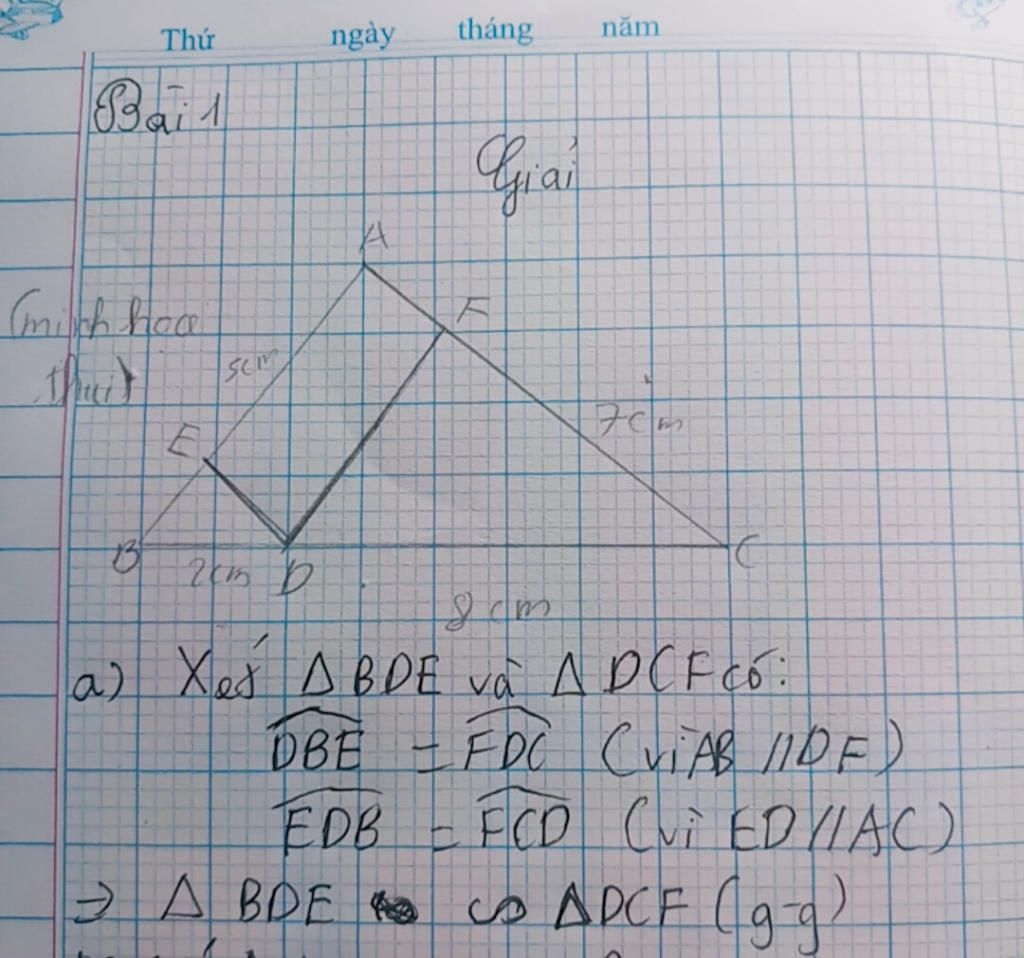 Thứ ngày tháng năm
Bài 1
Giải
A
F
(minh họa
thui)
5cm
7cm
E
B
2cm
D
C
8cm
a) Xét Δ BDE và Δ DCF có:
DBE = FDC (vì AB // DF)
EDB = FCD (vì ED // AC)
=> Δ BDE ∽ ΔDCF (g-g)